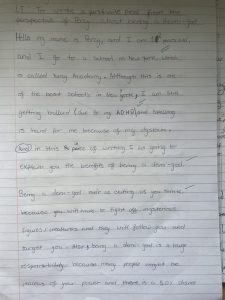 LI To write a persuasive piece from the
perspective of Percy about being a demi-god
Hello my name is Percy, and I am 1 years old,
and I go to a school in New York which
is called Yancy Academy. Although this is one
of the best schools in New York, I am still
getting bullied (due to my ADHD) and reading
is hard for me because of my dyslexia.
And in this piece of writing I am going to
explain you the benefits of being a demi-god.
Being a demi-god isn't as exciting as you think,
because you will have to fight off mysterious
figures/creatures and they will follow you and
target you. Also, being a demi-god is a huge
responsibility because many people might be
jealous of your power and there is a 50% chance